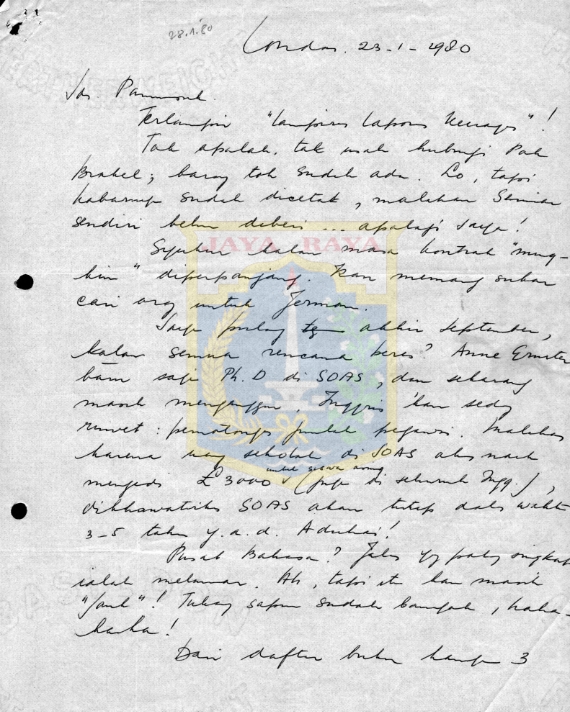 28.1.'80
London, 23-1-1980
Terlampir "Lampiran Laporan
Tak apalah, tak usah hubungi Pak
Brakel; barang toh sudah ada. Lo, tapi
kabarnya sudah dicetak, malahan
sendiri belum diberi ... apalagi saya!
JAYA RAYA
Syukur kalau masa kontrak "mung-
kin" diperpanjang. Kan memang sukar
cari orang untuk Jerman.
Saya pulang tgn akhir September,
kalau semua rencana beres? Anne
baru saja Ph.D di SOAS, dan sekarang
masih menganggur. Inggris 'kan sedang
ruwet: pegawai. Malahan
karena uang sekolah di SOAS akan naik
untuk orang asing
menjadi £3000 (juga di seluruh Ingg.),
dikhawatirkan SOAS akan tutup dalam waktu
3-5 tahun y.a.d. Aduhai!
Pusat Bahasa? Jelas yg paling
ialah melamar. Ah, tapi itu kan masih
"jauh"! Tukang sapu sudah banyak, haha-
haha!
Dari daftar buku hanya 3